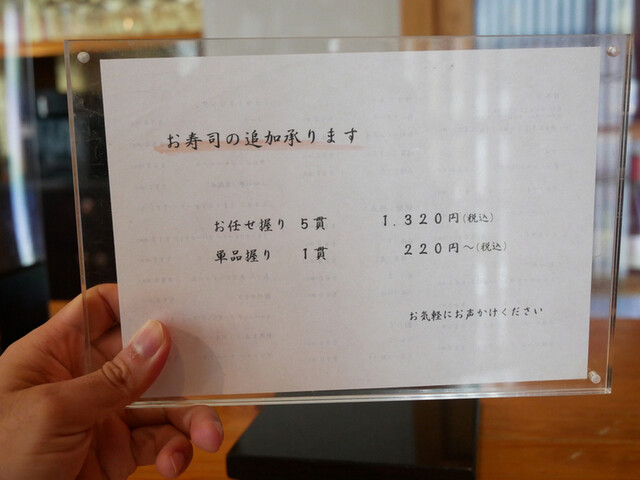 お寿司の追加承ります
お任せ握り 5貫 1,320円(税込)
単品握り 1貫 220円～(税込)
お気軽にお声かけください